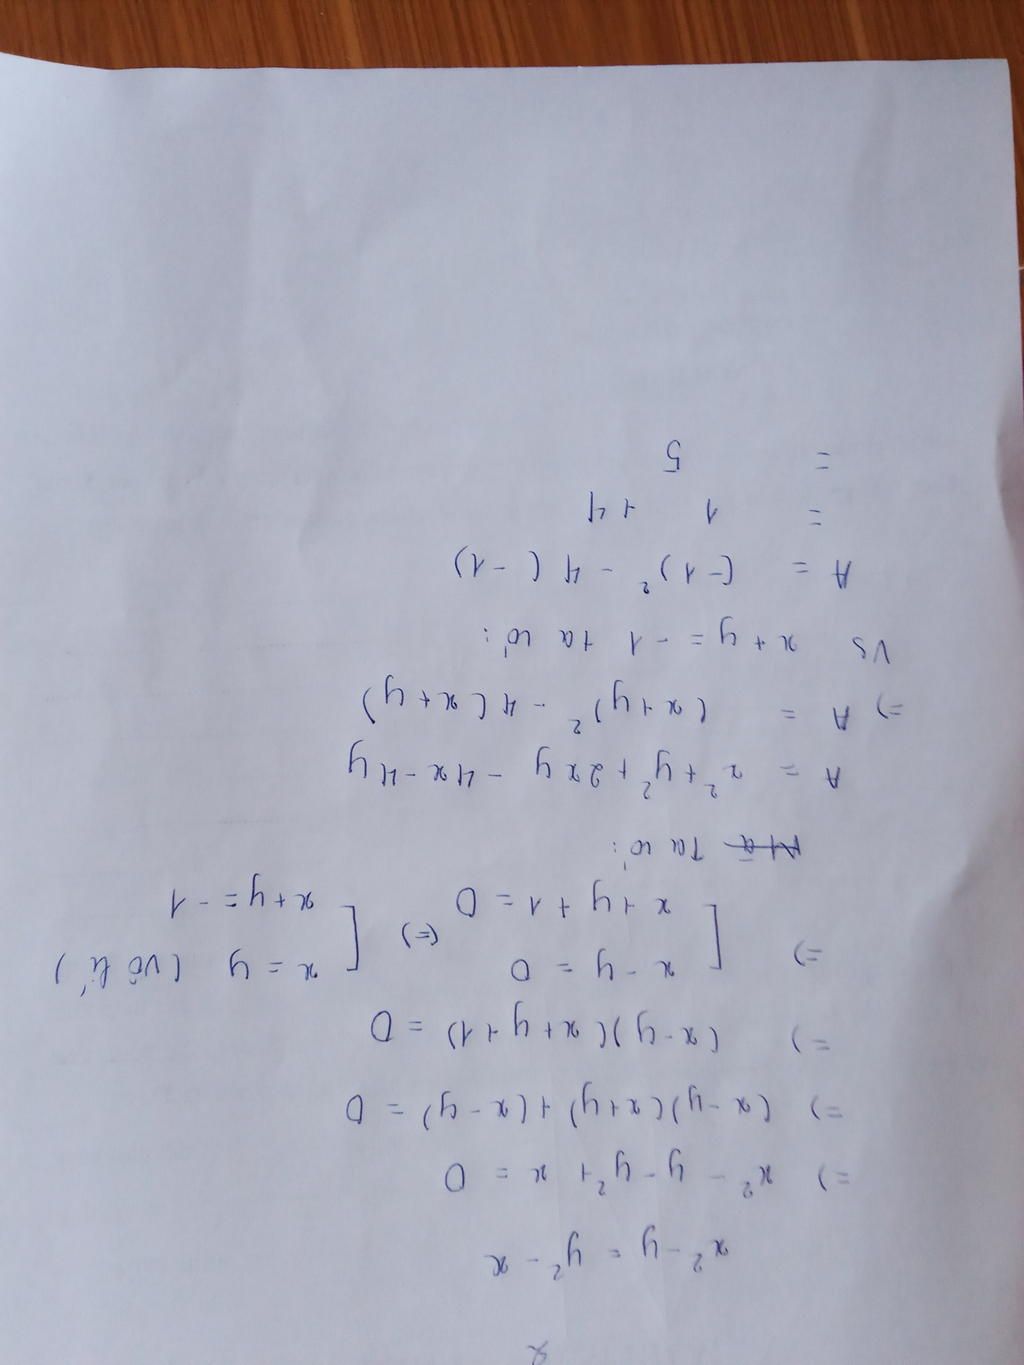 x² - y = y² - x
=) x² - y - y² + x = 0
=) (x - y)(x + y) + (x - y) = 0
=) (x - y)(x + y + 1) = 0
=) [ x - y = 0 (=) [ x = y (vô lí)
x + y + 1 = 0 x + y = -1
Ta có:
A = x² + y² + 2xy - 4x - 4y
=) A = (x + y)² - 4(x + y)
Vs x + y = -1 ta có:
A = (-1)² - 4(-1)
= 1 + 4
= 5